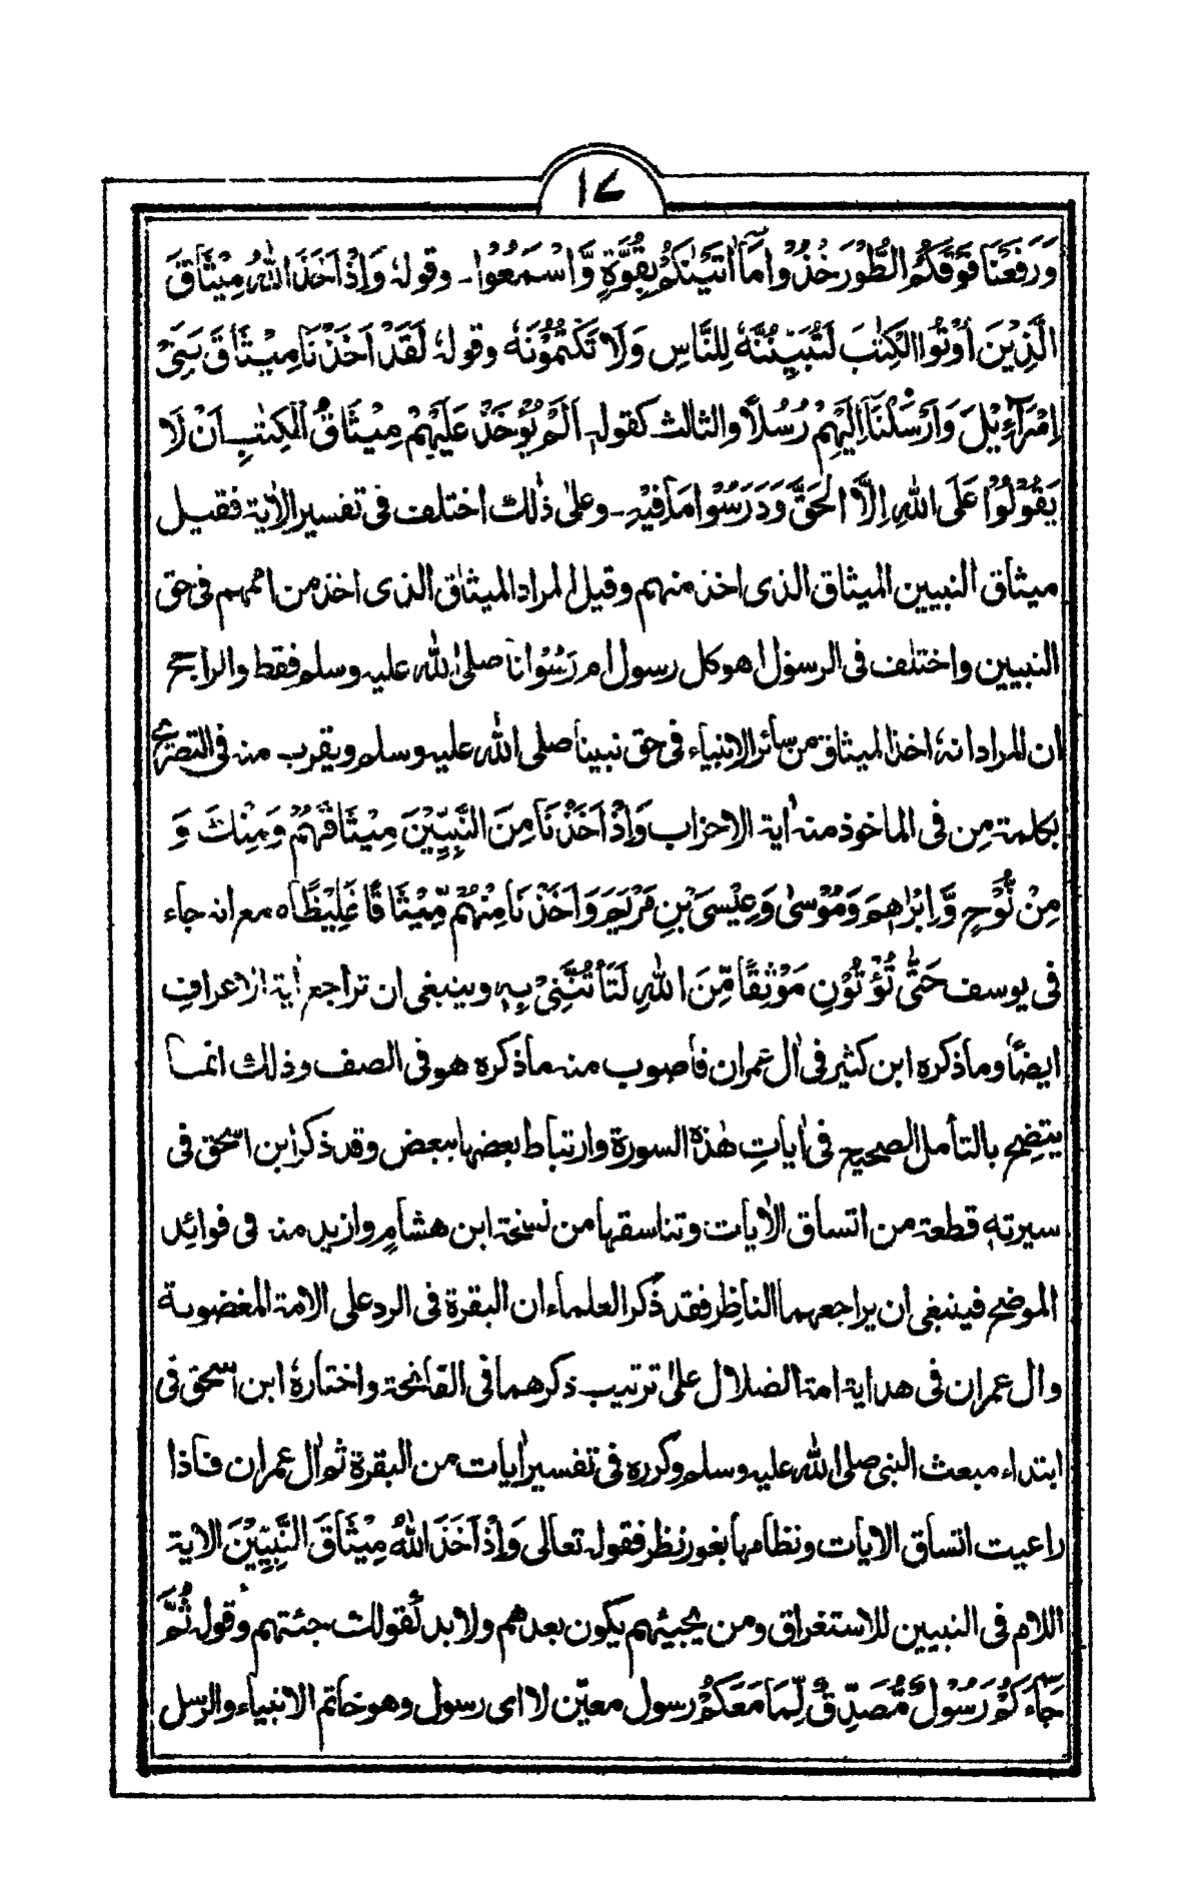 ١٧
وَرَفَعْنَا فَوْقَكُمُ الطُّوْرَ خُذُوْا مَآ اٰتَيْنٰكُمْ بِقُوَّةٍ وَّاسْمَعُوْا۔ وقولهٗ وَاِذْ اَخَذَ اللّٰهُ مِيْثَاقَ
الَّذِيْنَ اُوْتُوا الْكِتٰبَ لَتُبَيِّنُنَّهٗ لِلنَّاسِ وَلَا تَكْتُمُوْنَهٗ وقولهٗ لَقَدْ اَخَذْنَا مِيْثَاقَ بَنِيْٓ
اِسْرَآءِيْلَ وَاَرْسَلْنَآ اِلَيْهِمْ رُسُلًا والثالث كقولهٖ اَلَمْ يُؤْخَذْ عَلَيْهِمْ مِيْثَاقُ الْكِتٰبِ اَنْ لَا
يَقُوْلُوْا عَلَى اللّٰهِ اِلَّا الْحَقَّ وَدَرَسُوْا مَا فِيْهِ۔ وعلىٰ ذٰلك اختلف فى تفسير الاٰية فقيل
ميثاق النبيين الميثاق الذى اخذ منهم وقيل المراد الميثاق الذى اخذ من اممهم فى حق
النبيين واختلف فى الرسول اهو كل رسول ام رَسُوْلنا صلى الله عليه وسلم فقط والراجح
ان المراد انهٗ اخذ الميثاق من سائر الانبياء فى حق نبينا صلى الله عليه وسلم ويقرب منه فى التصريح
بكلمة مِن فى الماخوذ منه اٰية الاحزاب وَاِذْ اَخَذْنَا مِنَ النَّبِيّٖنَ مِيْثَاقَهُمْ وَمِنْكَ وَ
مِنْ نُّوْحٍ وَّاِبْرٰهِيْمَ وَمُوْسٰى وَعِيْسَى بْنِ مَرْيَمَ وَاَخَذْنَا مِنْهُمْ مِّيْثَاقًا غَلِيْظًا ه مع انه جاء
فى يوسف حَتّٰى تُؤْتُوْنِ مَوْثِقًا مِّنَ اللّٰهِ لَتَأْتُنَّنِيْ بِهٖ وينبغى ان تراجع اٰية الاعراف
ايضًا وما ذكره ابن كثير فى اٰل عمران فاصوب منه ما ذكره هو فى الصف وذلك انما
يتضح بالتأمل الصحيح فى اٰياتِ هٰذه السورة وارتباط بعضها ببعض وقد ذكر ابن اسحٰق فى
سيرتهٖ قطعة من اتساق الاٰيات وتناسقها من نسخة ابن هشامٍ وازيد منه فى فوائد
الموضح فينبغى ان يراجعهما الناظر فقد ذكر العلماء ان البقرة فى الرد على الامة المغضوبة
واٰل عمران فى هداية امة الضلال علىٰ ترتيب ذكرهما فى الفاتحة واختارهٗ ابن اسحٰق فى
ابتداء مبعث النبى صلى الله عليه وسلم وكرره فى تفسير اٰيات من البقرة ثم اٰل عمران فاذا
راعيت اتساق الاٰيات ونظامها بغور نظر فقوله تعالى وَاِذْ اَخَذَ اللّٰهُ مِيْثَاقَ النَّبِيّٖنَ الاٰية
اللام فى النبيين للاستغراق ومن يجيئهم يكون بعدهم ولا بد كقولك جئتهم وقوله ثُمَّ
جَآءَكُمْ رَسُوْلٌ مُّصَدِّقٌ لِّمَا مَعَكُمْ رسول معيّن لا اى رسول وهو خاتم الانبياء والرسل